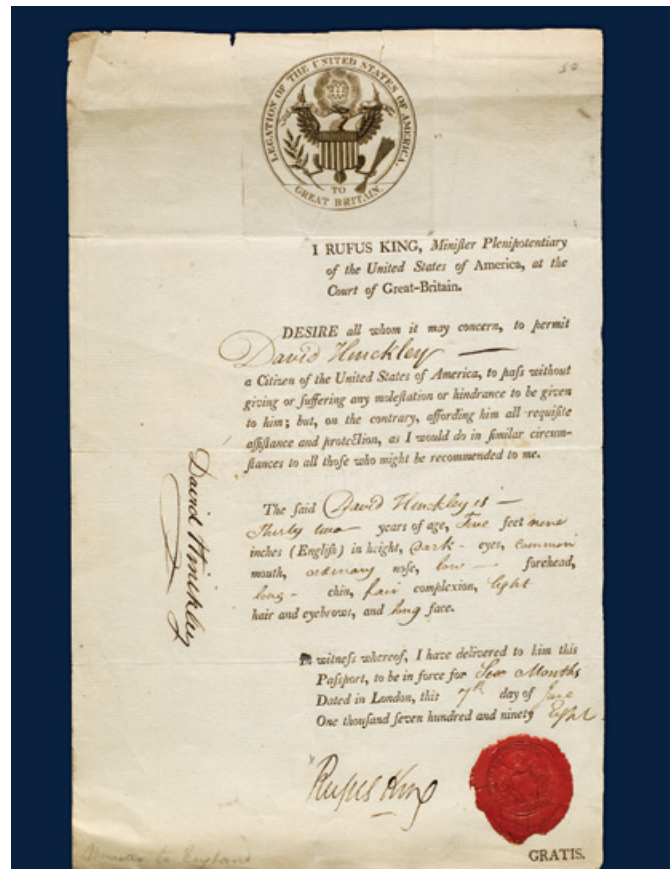 LEGATION OF THE UNITED STATES OF AMERICA.
TO
GREAT BRITAIN.
50
I RUFUS KING, Miniſter Plenipotentiary
of the United States of America, at the
Court of Great-Britain.
DESIRE all whom it may concern, to permit
David Hinckley —
a Citizen of the United States of America, to paſs without
giving or ſuffering any moleſtation or hindrance to be given
to him; but, on the contrary, affording him all requiſite
aſſiſtance and protection, as I would do in ſimilar circum-
ſtances to all thoſe who might be recommended to me.
The ſaid David Hinckley is —
Thirty two years of age, Five feet nine
inches (Engliſh) in height, Dark - eyes, common
mouth, ordinary noſe, low — forehead,
long - chin, fair complexion, light
hair and eyebrows, and long face.
In witneſs whereof, I have delivered to him this
Paſſport, to be in force for Six Months
Dated in London, this 7th day of June
One thouſand ſeven hundred and ninety Eight.
Rufus King
GRATIS.
David Hinckley
Minister to England